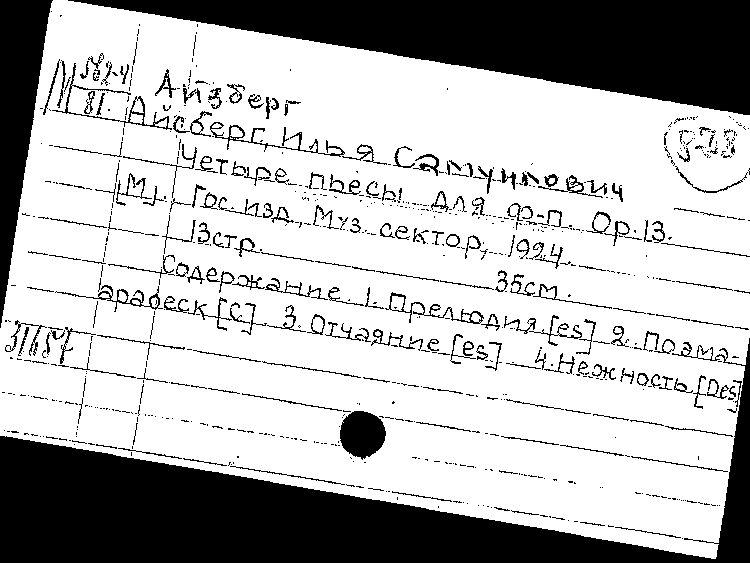 М 562-4
81.
Айзберг
8-78
Айсберг, Илья Самуилович
Четыре пьесы для ф-п. Op.13.
[М]. Гос. изд., Муз. сектор, 1924.
13стр. 35см.
Содержание. 1. Прелюдия [es] 2. Поэма-
арабеск [C] 3. Отчаяние [es] 4. Нежность [Des]
31657